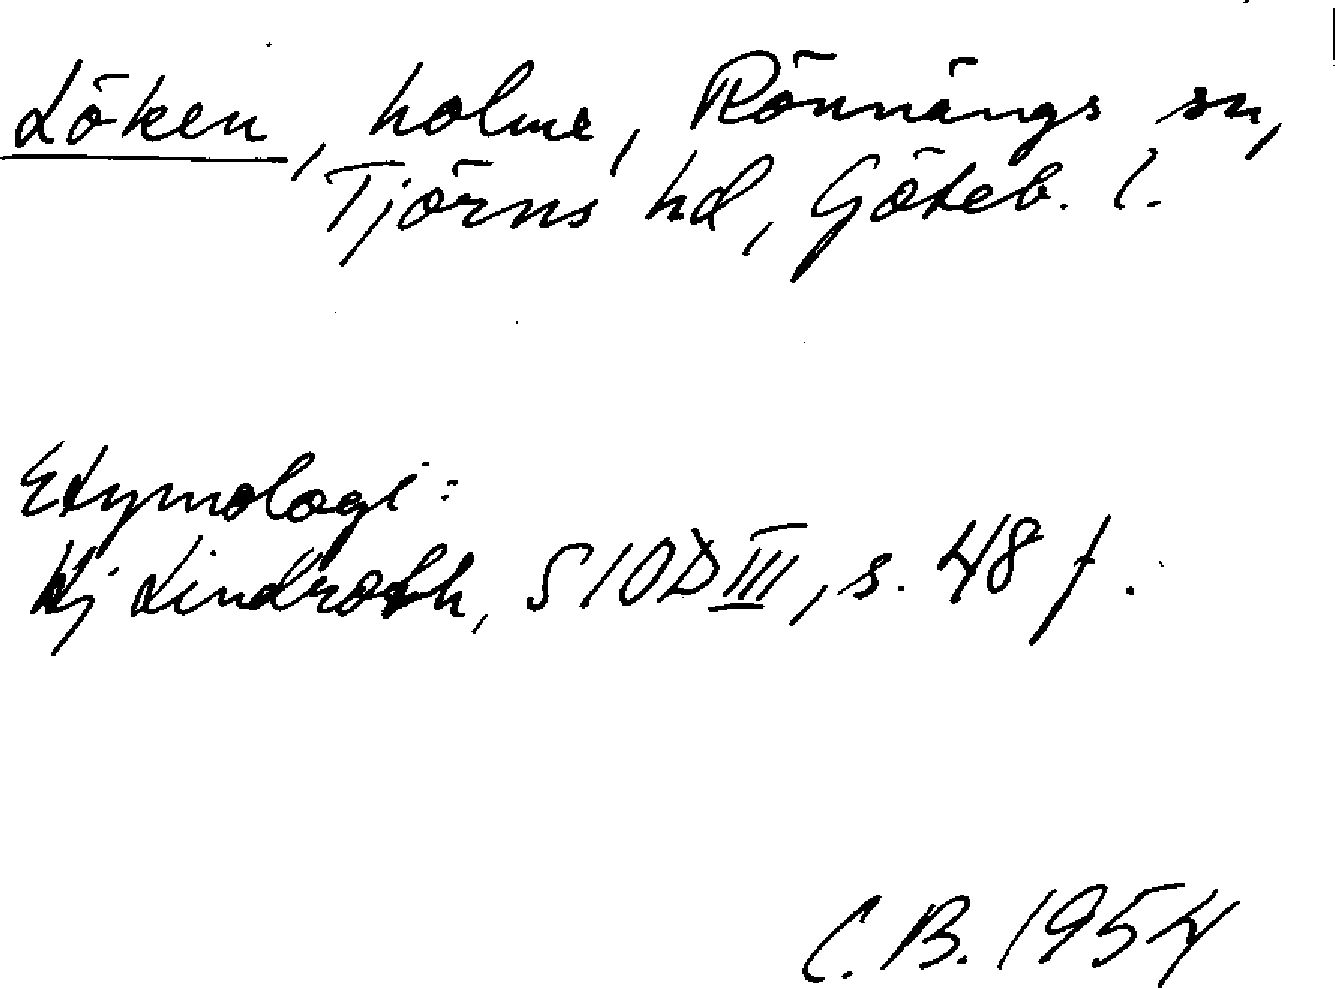 Löken, holme, Rönnängs sn,
Tjörns hd, Göteb. l.
Etymologi:
Hj Lindroth, SIOD III, s. 48 f.
C. B. 1954